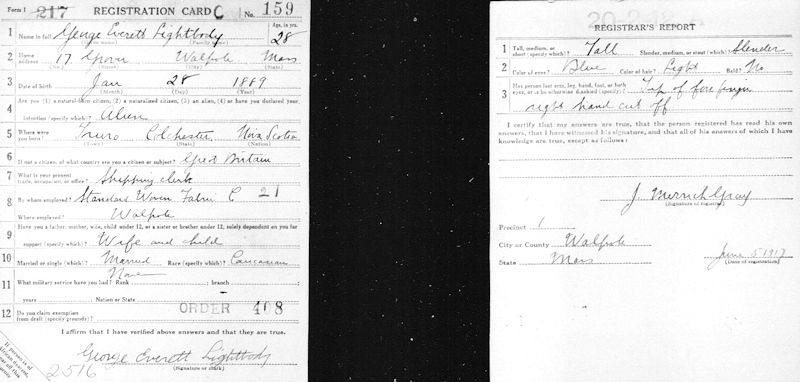 Form 1 217 REGISTRATION CARD C No. 159
1 Name in full George Everett Lightbody Age, in yrs. 28
(Given name) (Family name)
2 Home address 17 Grove Walpole Mass
(No.) (Street) (City) (State)
3 Date of birth Jan 28 1889
(Month) (Day) (Year)
4 Are you (1) a natural-born citizen, (2) a naturalized citizen, (3) an alien, (4) or have you declared your
intention (specify which)? Alien
5 Where were you born? Truro Colchester Nova Scotia
(Town) (State) (Nation)
6 If not a citizen, of what country are you a citizen or subject? Great Britain
7 What is your present trade, occupation, or office? Shipping clerk
8 By whom employed? Standard Woven Fabric C 21
Where employed? Walpole
9 Have you a father, mother, wife, child under 12, or a sister or brother under 12, solely dependent on you for
support (specify which)? Wife and child
10 Married or single (which)? Married Race (specify which)? Caucasian
11 What military service have you had? Rank None ; branch
years ; Nation or State
12 Do you claim exemption from draft (specify grounds)? ORDER 408
I affirm that I have verified above answers and that they are true.
George Everett Lightbody
(Signature or mark)
If person is of
African descent,
2516
REGISTRAR'S REPORT
1 Tall, medium, or short (specify which)? Tall Slender, medium, or stout (which)? Slender
2 Color of eyes? Blue Color of hair? Light Bald? No
3 Has person lost arm, leg, hand, foot, or both
eyes, or is he otherwise disabled (specify)? Tip of fore finger
right hand cut off
I certify that my answers are true, that the person registered has read his own
answers, that I have witnessed his signature, and that all of his answers of which I have
knowledge are true, except as follows:
J. Merrich Gray
(Signature of registrar)
Precinct 1
City or County Walpole
State Mass
June 5 1917
(Date of registration)